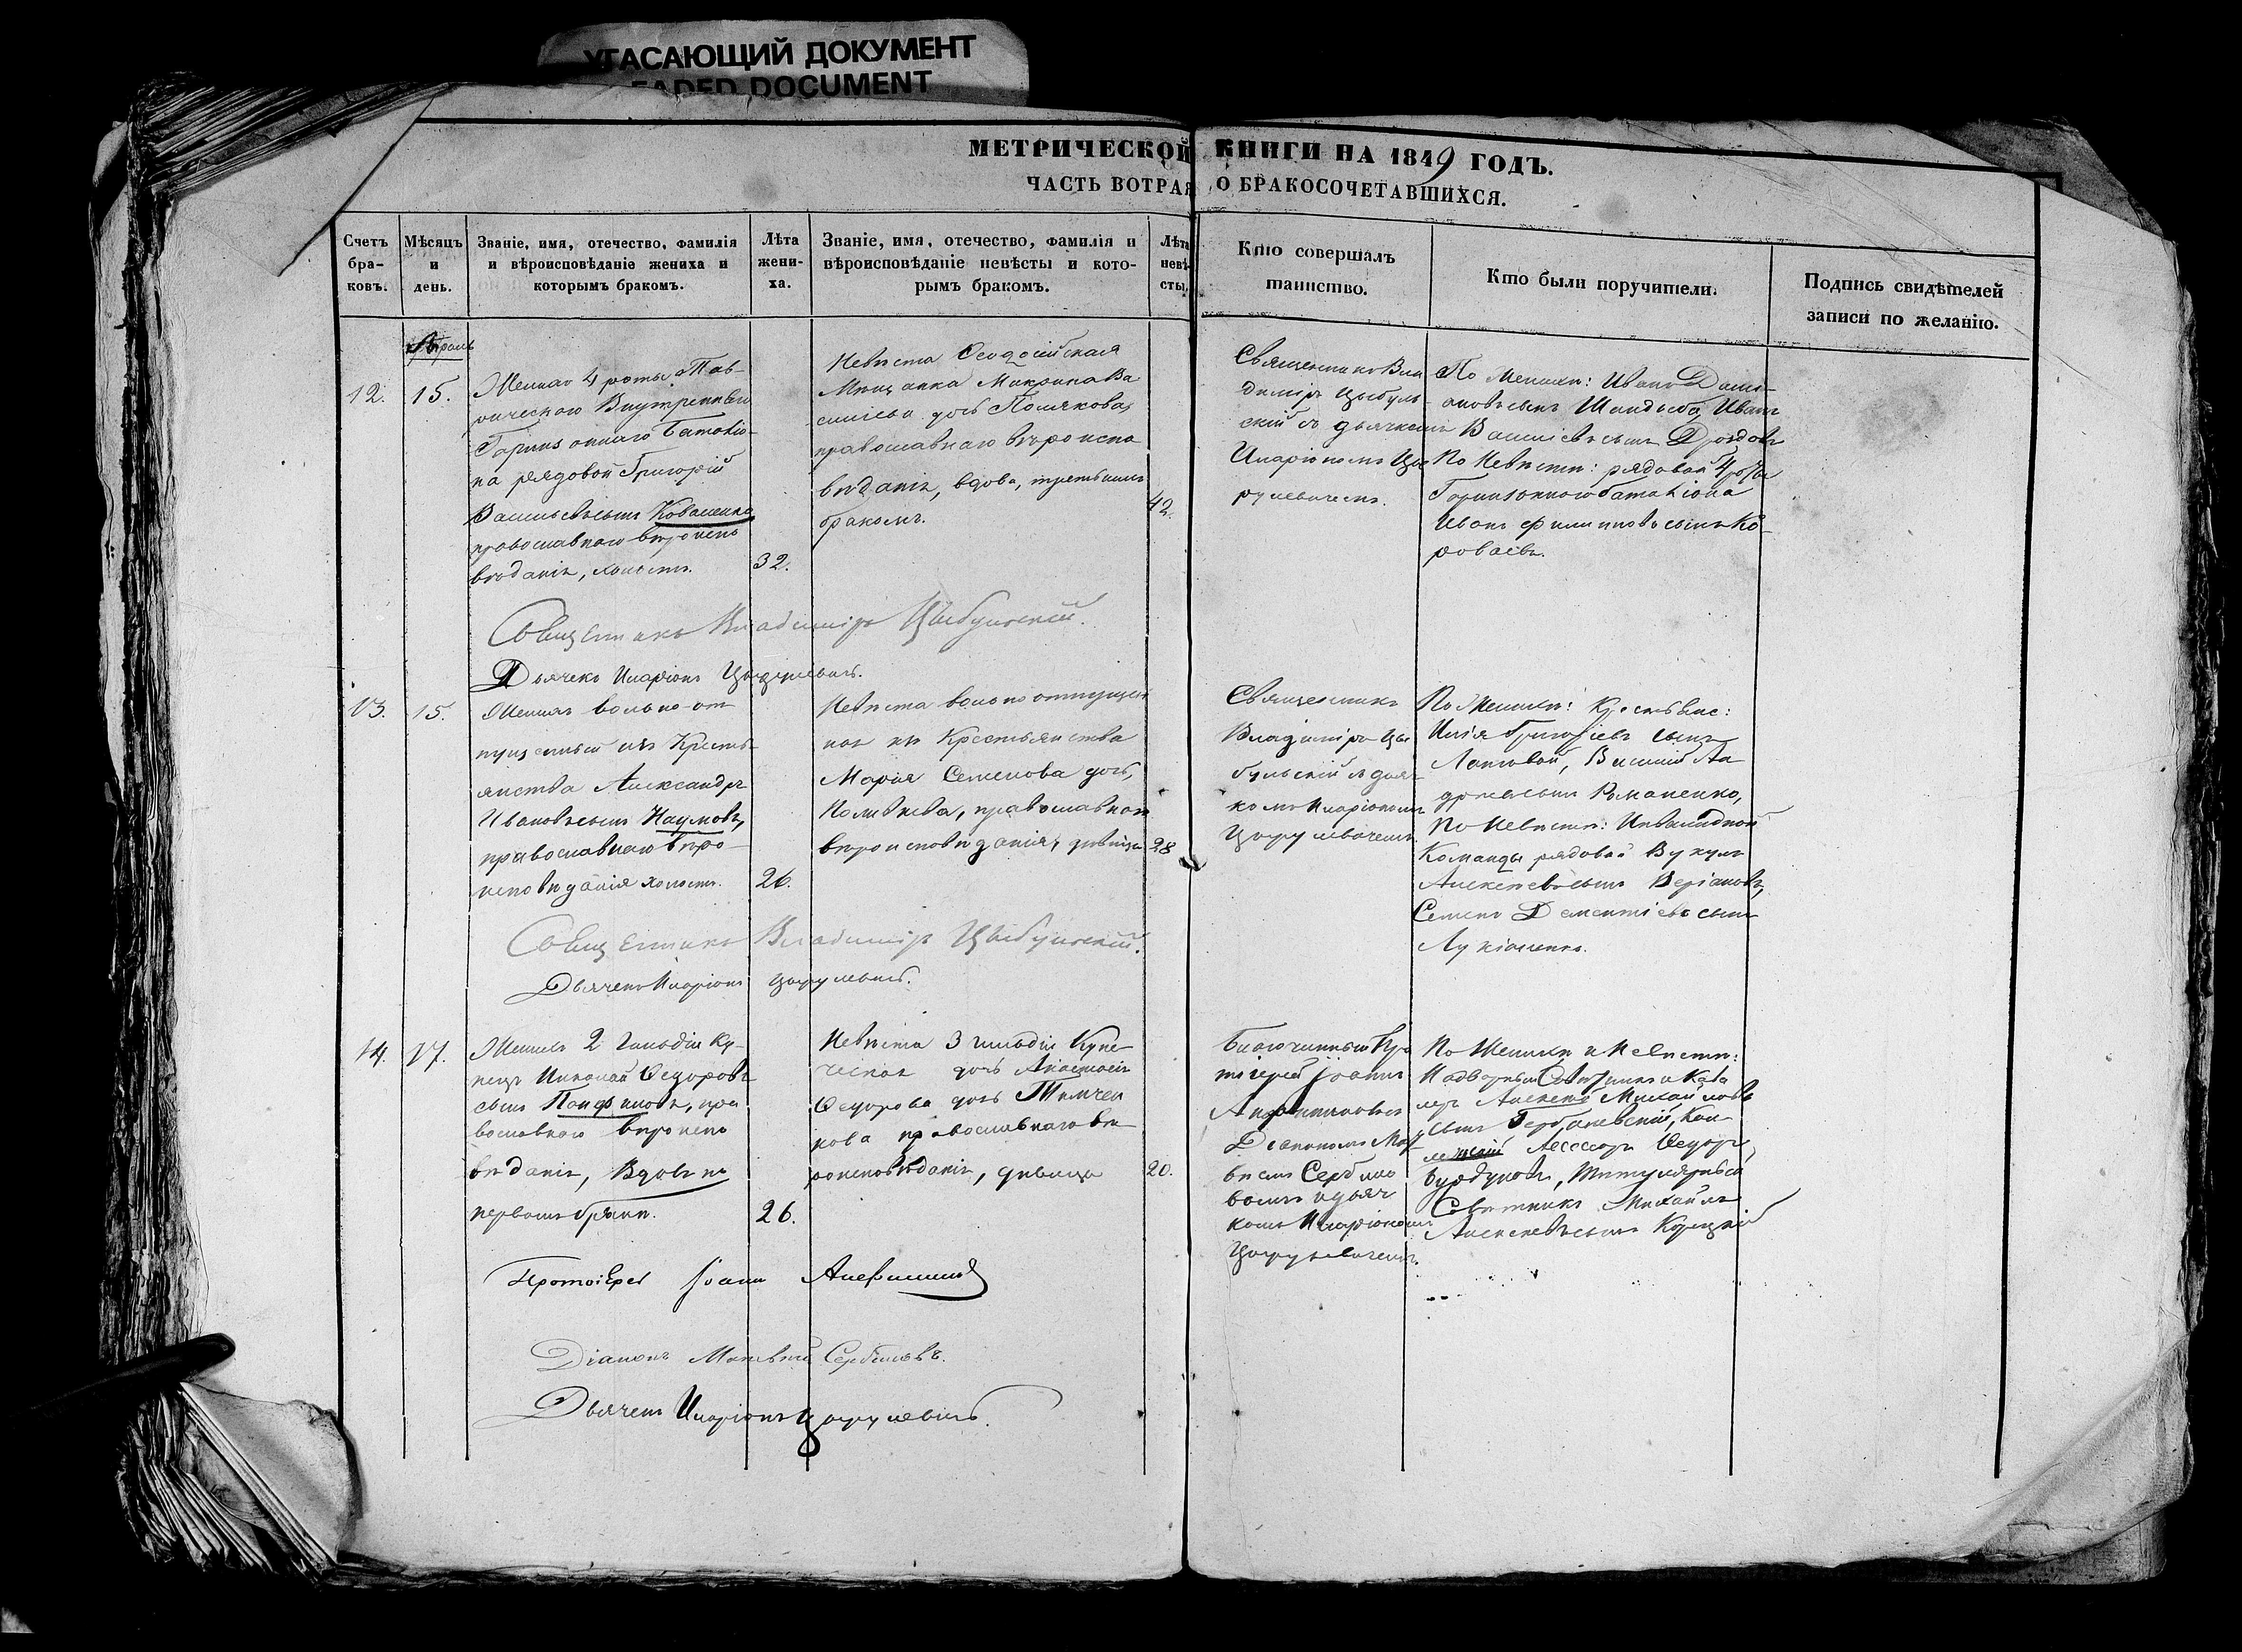 УГАСАЮЩИЙ ДОКУМЕНТ
FADED DOCUMENT
МЕТРИЧЕСКОЙ КНИГИ НА 1849 ГОДЪ.
ЧАСТЬ ВОТРАЯ О БРАКОСОЧЕТАВШИХСЯ.
Счетъ
бра-
ковъ.
Мѣсяцъ
и
день.
Званіе, имя, отечество, фамилія
и вѣроисповѣданіе жениха и
которымъ бракомъ.
Лѣта
жени-
ха.
Званіе, имя, отечество, фамилія и
вѣроисповѣданіе невѣсты и кото-
рымъ бракомъ.
Лѣта
невѣ-
сты.
Кто совершалъ
таинство.
Кто были поручители.
Подпись свидѣтелей
записи по желанію.
Апрѣль
12.
15.
Женихъ 4 роты Тав-
рическаго Внутренняго
Гарнизоннаго Баталіо-
на рядовой Григорій
Васильевъ сынъ Коваленко
православнаго вѣроиспо
вѣданія, холостъ.
32.
Невѣста Ѳеодосійская
Мѣщанка Макрина Ва
сильева дочь Полякова,
православнаго вѣроиспо
вѣданія, вдова, третьимъ
бракомъ.
42.
Священникъ Вла
диміръ Цыбуль-
скій съ дьячкомъ
Иларіономъ Цы
рулевичемъ.
По Женихѣ: Иванъ
сынъ Иванъ
Васильевъ сынъ Дроздовъ
По Невѣстѣ: рядовой 4 роты
Гарнизоннаго баталіона
Иванъ Филиповъ сынъ Ко-
роваевъ.
Священникъ Владиміръ Цыбульскій.
Дьячекъ Иларіонъ Цырулевичъ.
13.
15.
Женихъ вольно-от
пущенный изъ Кресть-
янства Александръ
Ивановъ сынъ Наумовъ,
православнаго вѣро-
исповѣданія холостъ.
26.
Невѣста вольноотпущен
ная изъ Крестьянства
Марія Семенова дочь,
православнаго
вѣроисповѣданія, дѣвица
28
Священникъ
Владиміръ Цы
бульскій съ дьяч
комъ Иларіономъ
Цырулевичемъ.
По Женихѣ: Крестьяне:
Илія Григорьевъ сынъ
Василій Ан
сынъ Романенко,
По Невѣстѣ: Инвалидной
Команды рядовой Вукулъ
Алексѣевъ сынъ
Семенъ Дементіевъ сынъ
Лукіяненко.
Священникъ Владиміръ Цыбульскій.
Дьячекъ Иларіонъ Цырулевичъ.
14.
17.
Женихъ 2 Гильдіи Ку-
пецъ Николай Ѳедоровъ
сынъ Панфиловъ, пра
вославнаго вѣроиспо
вѣданія, Вдовъ по
первомъ бракѣ.
26.
Невѣста 3 гильдіи Купе-
ческая дочь Анастасія
Ѳедорова дочь Тимчен
кова православнаго вѣ-
роисповѣданія, дѣвица
20.
Благочинный Про
тоіерей Іоаннъ
Діакономъ Мат
вѣемъ Сербино
вымъ и дьяч
комъ Иларіономъ
Цырулевичемъ.
По Женихѣ и Невѣстѣ:
Надворный Совѣтникъ и Кава
леръ Алексѣй Михайловъ
сынъ Кол-
лежскій Ассесоръ Ѳедоръ
Титулярный
Совѣтникъ Михайлъ
Алексѣевъ сынъ
Протоіерей Іоаннъ
Діаконъ Матвѣй Сербиновъ.
Дьячекъ Иларіонъ Цырулевичъ.